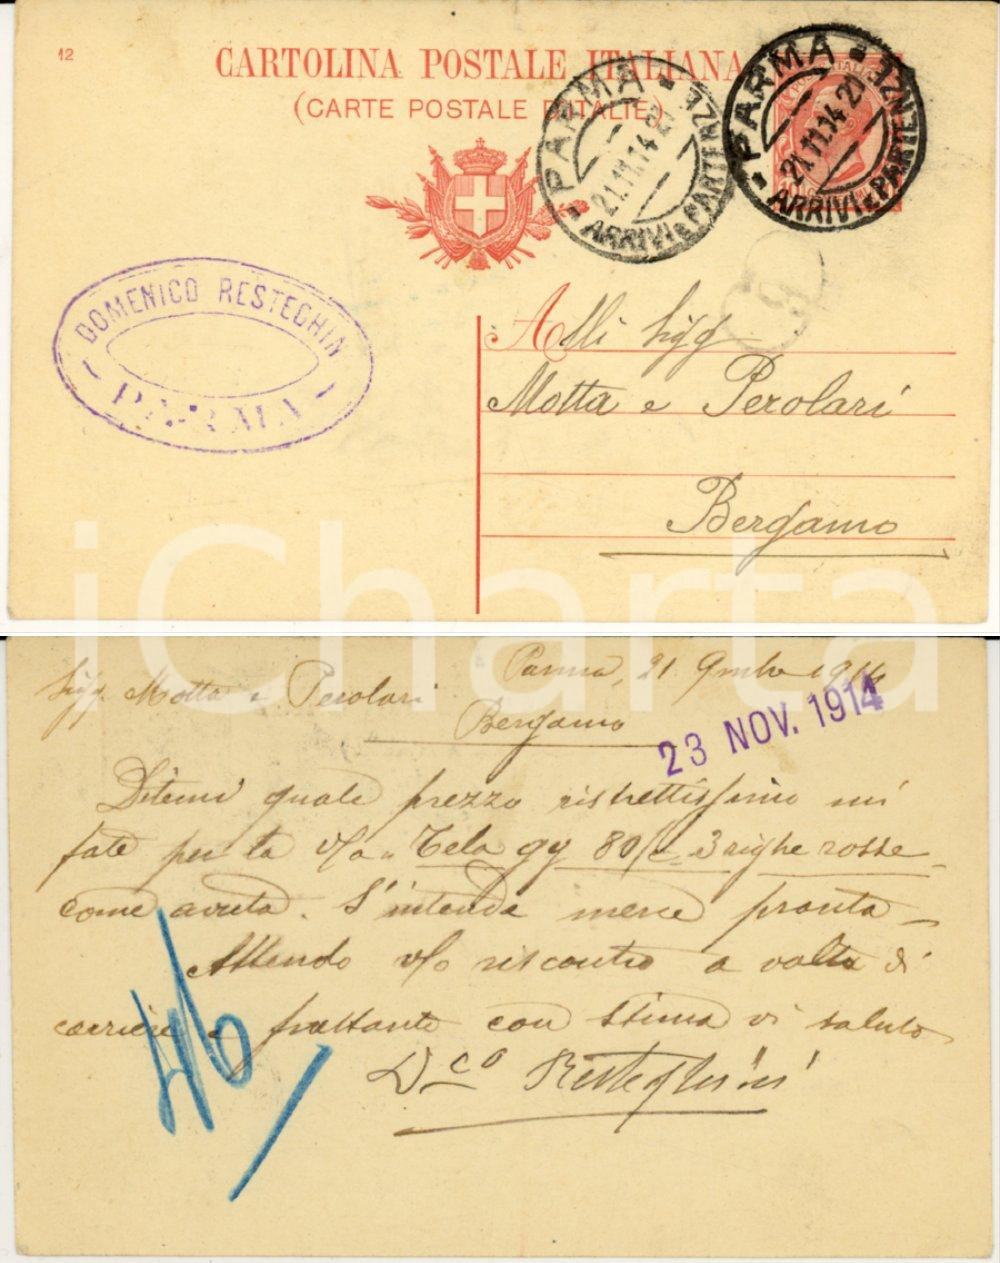 12
CARTOLINA POSTALE ITALIANA
(CARTE POSTALE D'ITALIE)
PARMA
21.11.14.21
ARRIVI E PARTENZE
PARMA
21.11.14.21
ARRIVI E PARTENZE
DOMENICO RESTEGHIN
PARMA
9
Alli Sigg
Motta e Perolari
Bergamo
iCharta
Parma, 21 9mbre 1914
Sigg. Motta e Perolari
Bergamo
23 NOV. 1914
Ditemi quale prezzo ristrettissimo mi
fate per la v/a Tela gg 80/c 3 righe rosse
come avuta. S'intende merce pronta
Attendo v/o riscontro a volta di
corriere e frattanto con stima vi saluto
Dco Resteghini